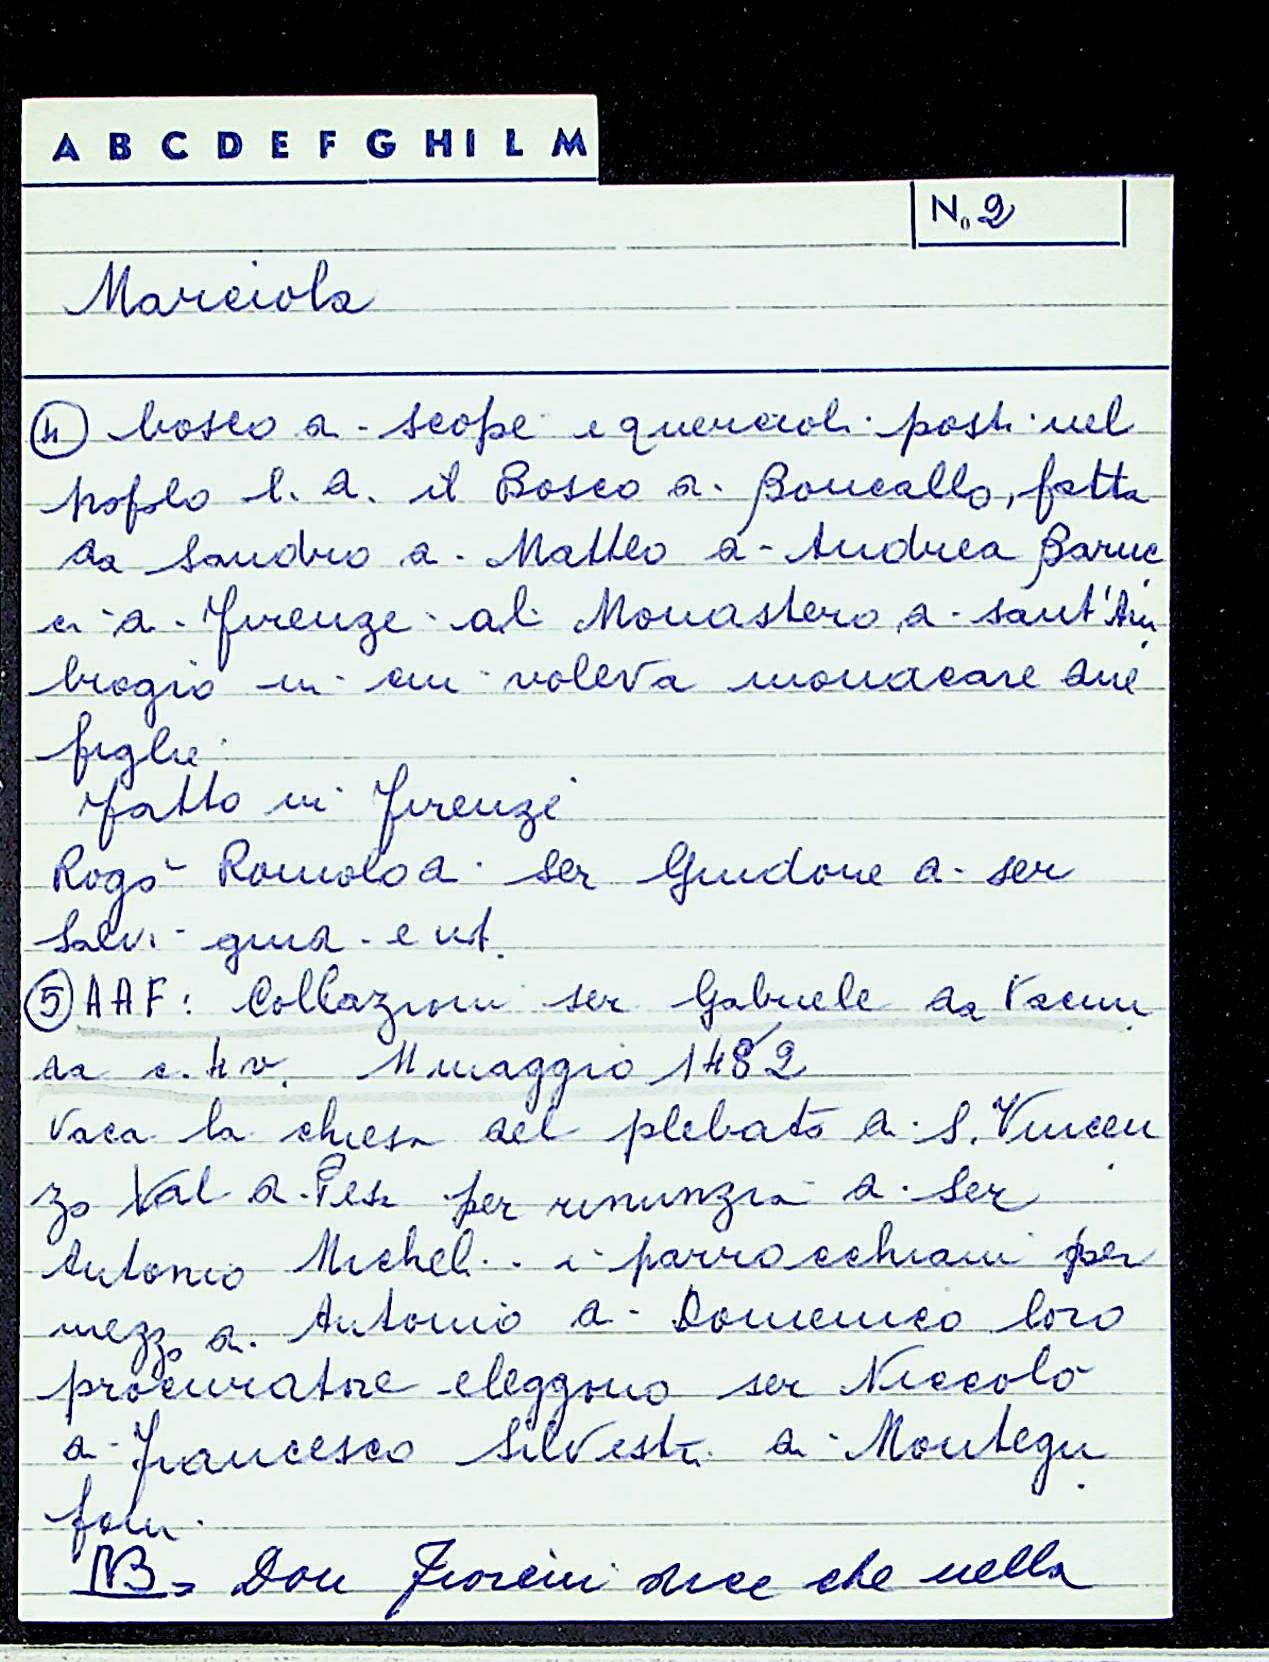 A B C D E F G H I L M
No 2
Marciola
④ bosco di scope e quercioli posti nel
popolo l. d. il Bosco di Boncallo, fatta
da Sandro di Matteo di Andrea Baruc
ci di Firenze al Monastero di sant'Am
brogio in cui voleva monacare due
figlie
Fatto in Firenze
Rogò Romolo di ser Guidone di ser
Salvi giud. e not.
⑤ AAF: Collazioni ser Gabriele da Vecin
da c. 4v. 11 maggio 1482
Vaca la chiesa del plebato di S. Vincen
zo Val di Pesa per rinunzia di ser
Antonio Micheli. i parrocchiani per
mezzo di Antonio di Domenico loro
procuratore eleggono ser Niccolò
di Francesco Silvestri di Montegu
foni.
NB = Don Fiorini dice che nella